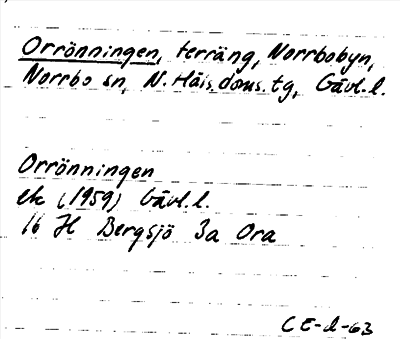 Orrönningen, terräng, Norrbobyn,
Norrbo sn, N. Häls. doms. tg, Gävl. l.
Orrönningen
ek (1959) Gävl. l.
16 H Bergsjö 3a Ora
CE-l-63